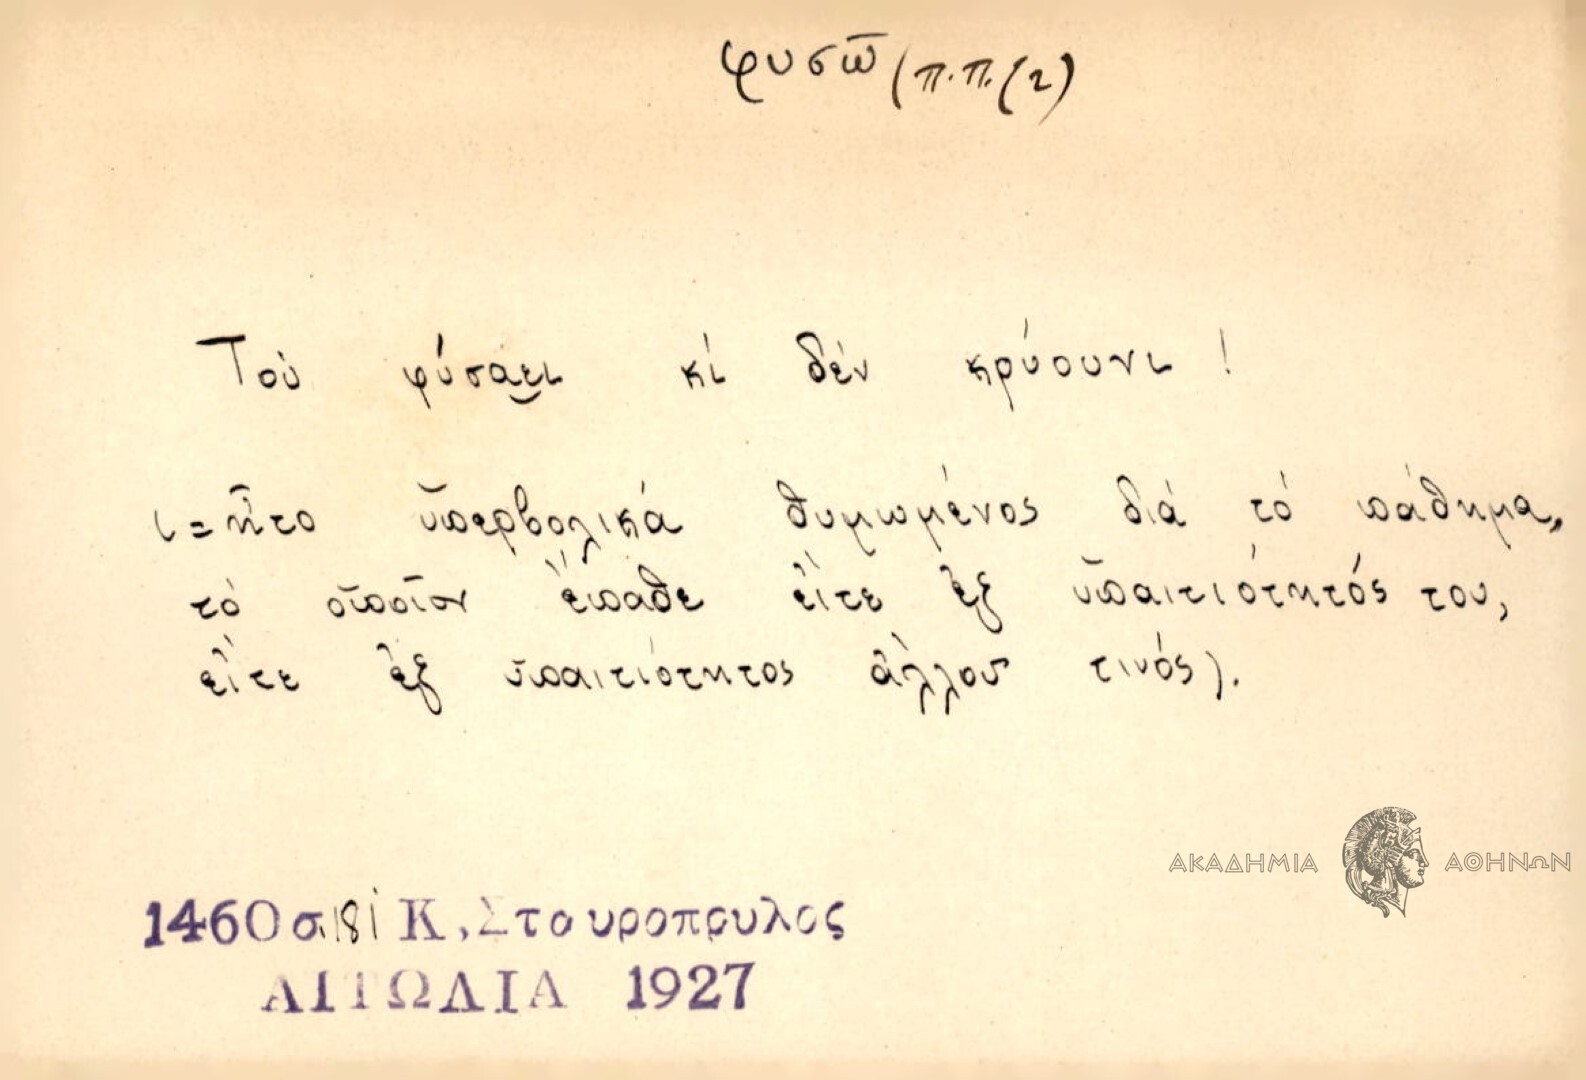 φυσῶ (π.π. (2)
Τοὺ φύσαει κί δέν κρύουνι !
(=ἦτο ὑπερβολικά θυμωμένος διά τό πάθημα,
τό ὁποῖον ἔπαθε εἴτε ἐξ ὑπαιτιότητός του,
εἴτε ἐξ ὑπαιτιότητος ἄλλου τινός).
ΑΚΑΔΗΜΙΑ ΑΘΗΝΩΝ
1460 σ. 181 Κ, Σταυροπουλος
ΑΙΤΩΛΙΑ 1927